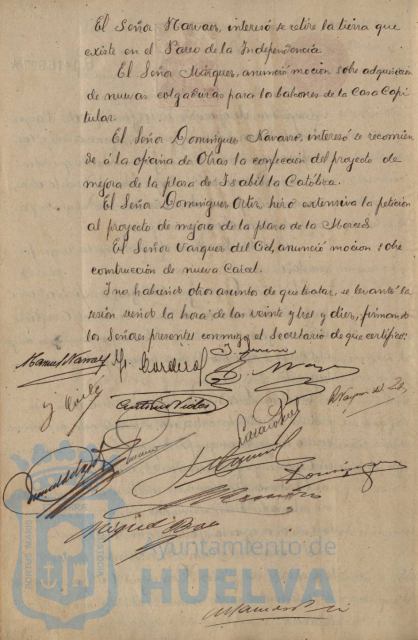 El Señor Narvaes, interesó se retire la tierra que
existe en el Paseo de la Independencia.
El Señor Márques, anunció mocion sobre adquisicion
de nuevas colgaduras para los balcones de la Casa Capi
tular.
El Señor Domingues Navarro, interesó se recomien
de á la oficina de Obras la confección del proyecto de
mejora de la plaza de Isabel la Católica.
El Señor Domingues Ortiz, hizo extensiva la petición
al proyecto de mejora de la plaza de la Merced.
El Señor Vazques del Cid, anunció mocion sobre
construcción de nueva Carcel.
Y no habiendo otros asuntos de que tratar, se levantó la
sesión siendo la hora de las veinte y tres y diez, firmando
los Señores presentes conmigo el Secretario de que certifico:
Manuel Narvaez
Antonio Vides
Dominguez
Miguel
Ayuntamiento de
HUELVA